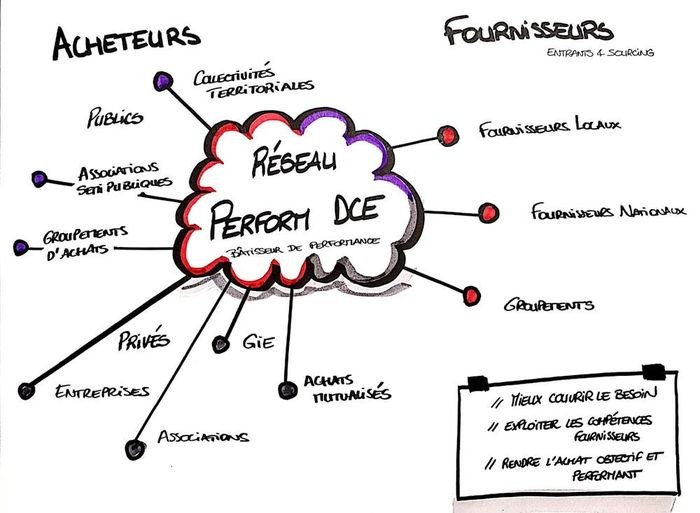 ACHETEURS
FOURNISSEURS
ENTRANTS & SOURCING
COLLECTIVITÉS
TERRITORIALES
PUBLICS
FOURNISSEURS LOCAUX
RÉSEAU
ASSOCIATIONS
SEMI PUBLIQUES
PERFORM DCE
FOURNISSEURS NATIONAUX
GROUPEMENTS
D'ACHATS
BÂTISSEUR DE PERFORMANCE
GROUPEMENTS
PRIVÉS
GIE
ENTREPRISES
ACHATS
MUTUALISÉS
ASSOCIATIONS
// MIEUX COUVRIR LE BESOIN
// EXPLOITER LES COMPÉTENCES
FOURNISSEURS
// RENDRE L'ACHAT OBJECTIF ET
PERFORMANT